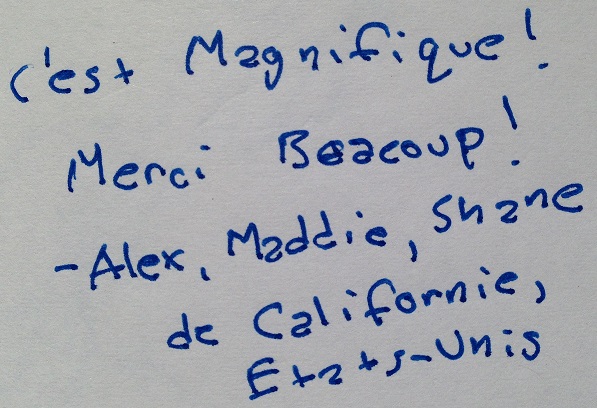 c'est Magnifique!
Merci Beacoup!
-Alex, Maddie, Shane
de Californie,
Etats-Unis